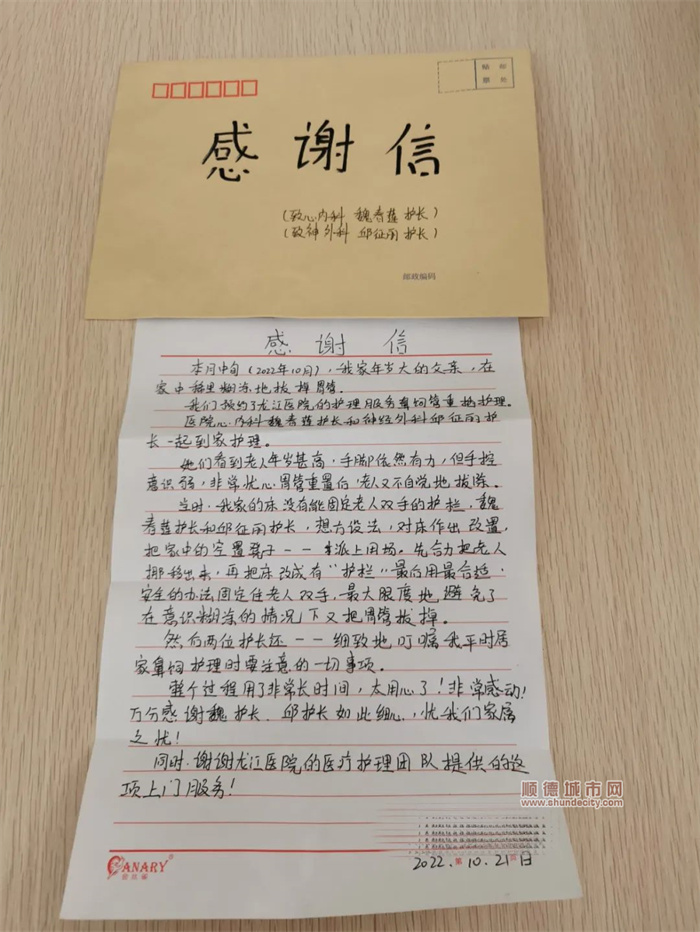 贴 邮
票 处
感 谢 信
(致心内科 魏春莲 护长)
(致神外科 邱征丽 护长)
邮政编码
感 谢 信
本月中旬(2022年10月),我家年岁大的父亲,在
家中稀里糊涂地拔掉胃管。
我们预约了龙江医院的护理服务鼻饲管重插护理。
医院心内科魏春莲护长和神经外科邱征丽护
长一起到家护理。
她们看到老人年岁甚高,手脚依然有力,但手控
意识弱,非常忧心胃管重置后,老人又不自觉地拔除。
当时,我家的床没有能固定老人双手的护栏,魏
春莲护长和邱征丽护长,想方设法,对床作出改置,
把家中的空置凳子一一派上用场。先合力把老人
挪移出来,再把床改成有“护栏”最后用最合适
安全的办法固定住老人双手,最大限度地避免了
在意识糊涂的情况下又把胃管拔掉。
然后两位护长还一一细致地叮嘱我平时居
家鼻饲护理时要注意的一切事项。
整个过程用了非常长时间,太用心了!非常感动!
万分感谢魏护长、邱护长如此细心,忧我们家属
之忧!
同时,谢谢龙江医院的医疗护理团队提供的这
项上门服务!
2022.10.21日
CANARY®
顺德城市网
www.shundecity.com